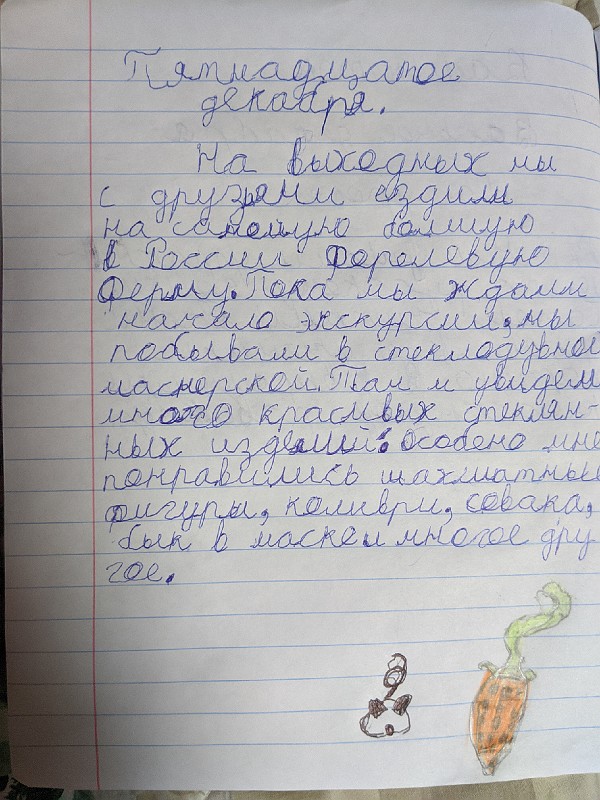 Пятнадцатое
декабря.
На выходных мы
с друзями ездили
на самоюую болшую
в России форелевую
ферму. Пока мы ждали
начало экскурсии, мы
побывали в стеклодувной
маснерской. Там и увидел
много красивых стеклян-
ных изделий. Особено мне
понравились шахматные
фигуры, колибри, собака,
бык в маске и многое дру
гое.